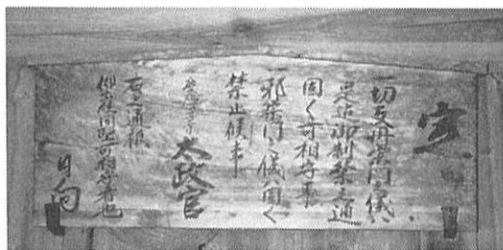 定
一切支丹宗門之儀ハ
是迄御制禁之通
固く可相守事
邪宗門之儀ハ固く
禁止候事
太政官
右之通被
仰出候間堅可相守者也
日向